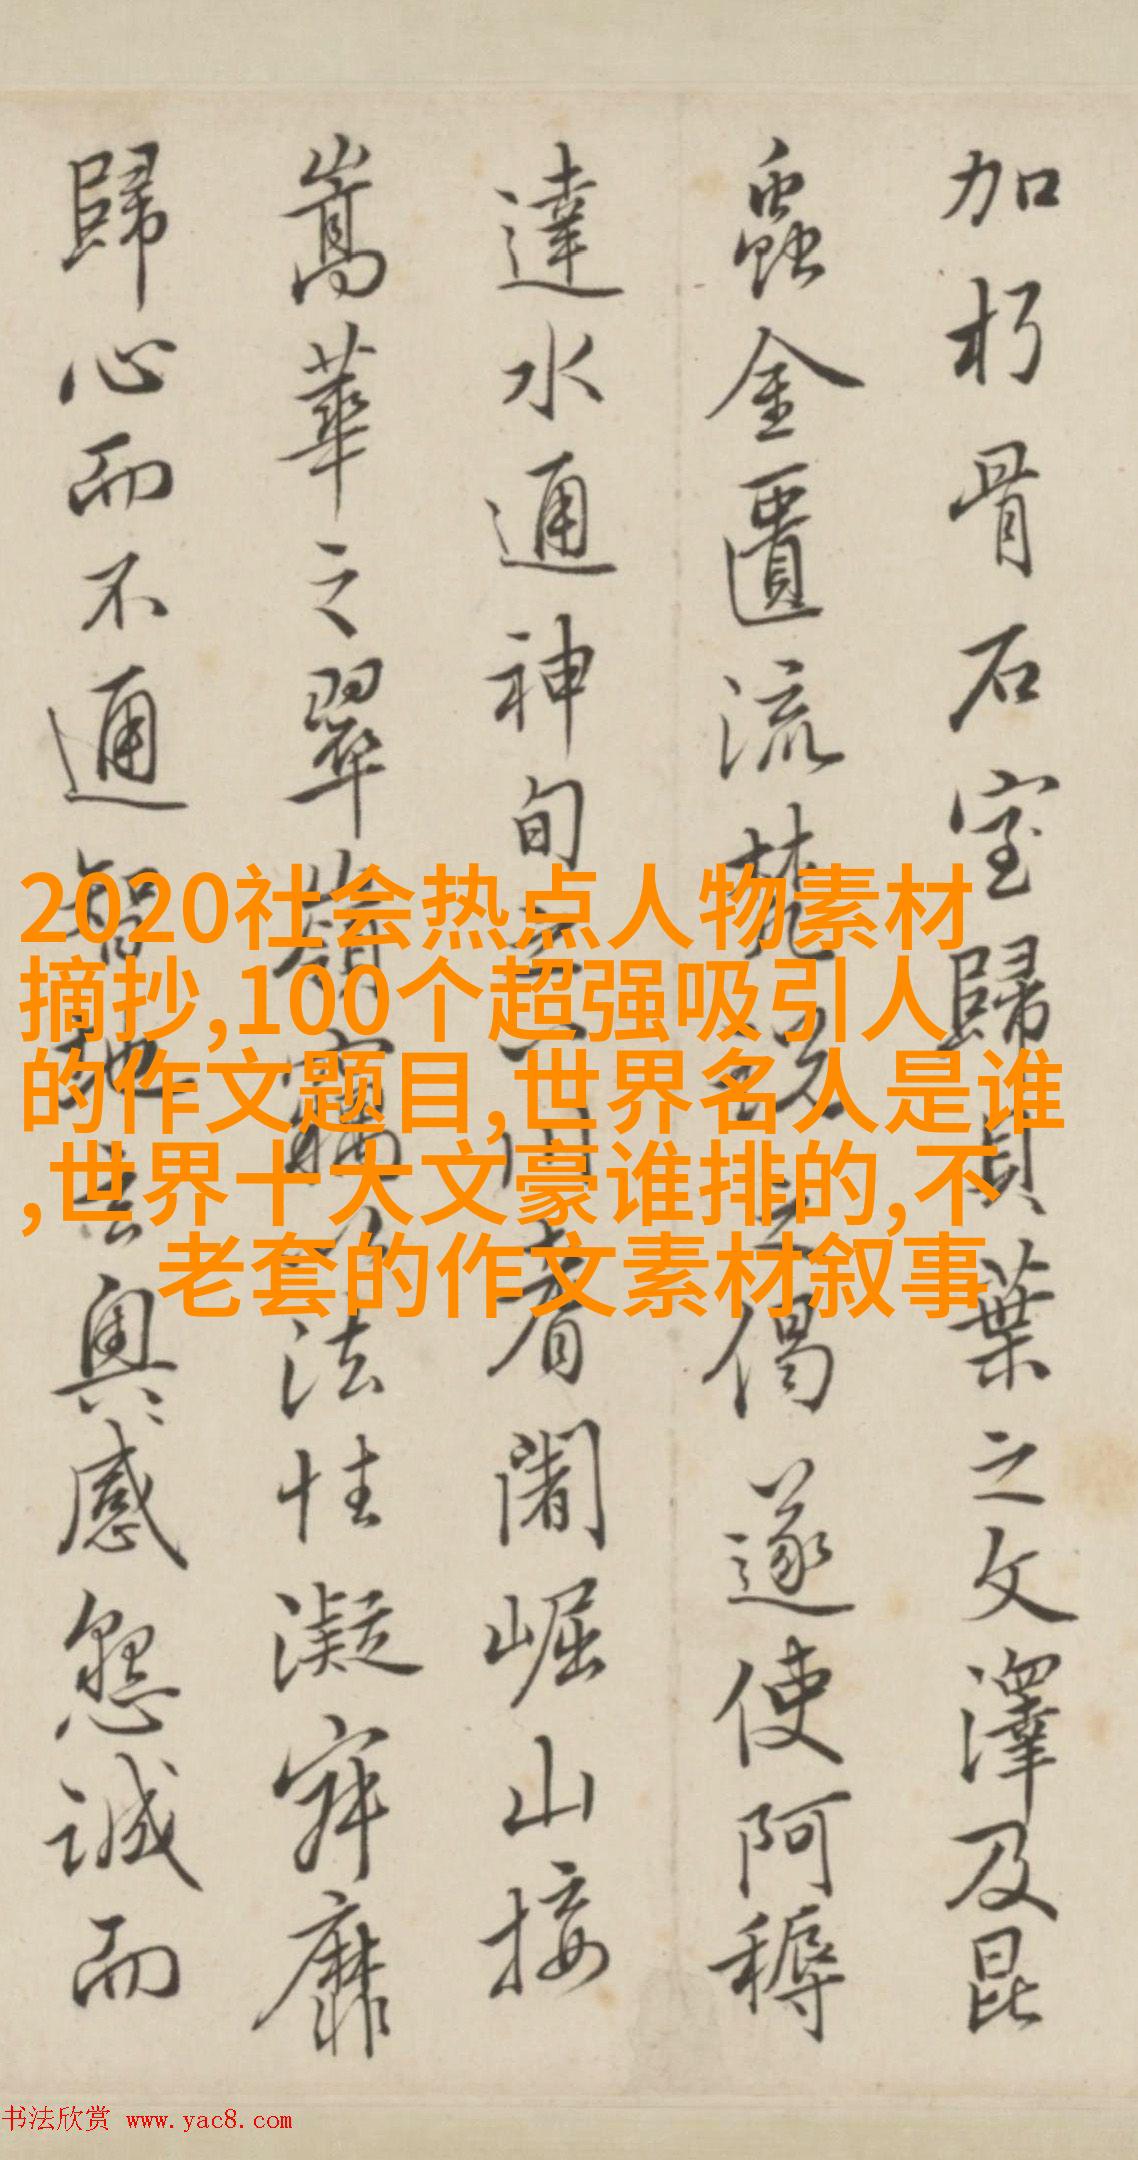 加朽骨石室歸貝葉之文澤及昆
蟲金匱流梵說之偈遂使阿耨
達水通神甸之八川耆闍崛山接
嵩華之翠嶺竊以法性凝寂靡
歸心而不通智地玄奧感懇誠而
2020社会热点人物素材
摘抄,100个超强吸引人
的作文题目,世界名人是谁
,世界十大文豪谁排的,不
老套的作文素材叙事
书法欣赏 www.yac8.com